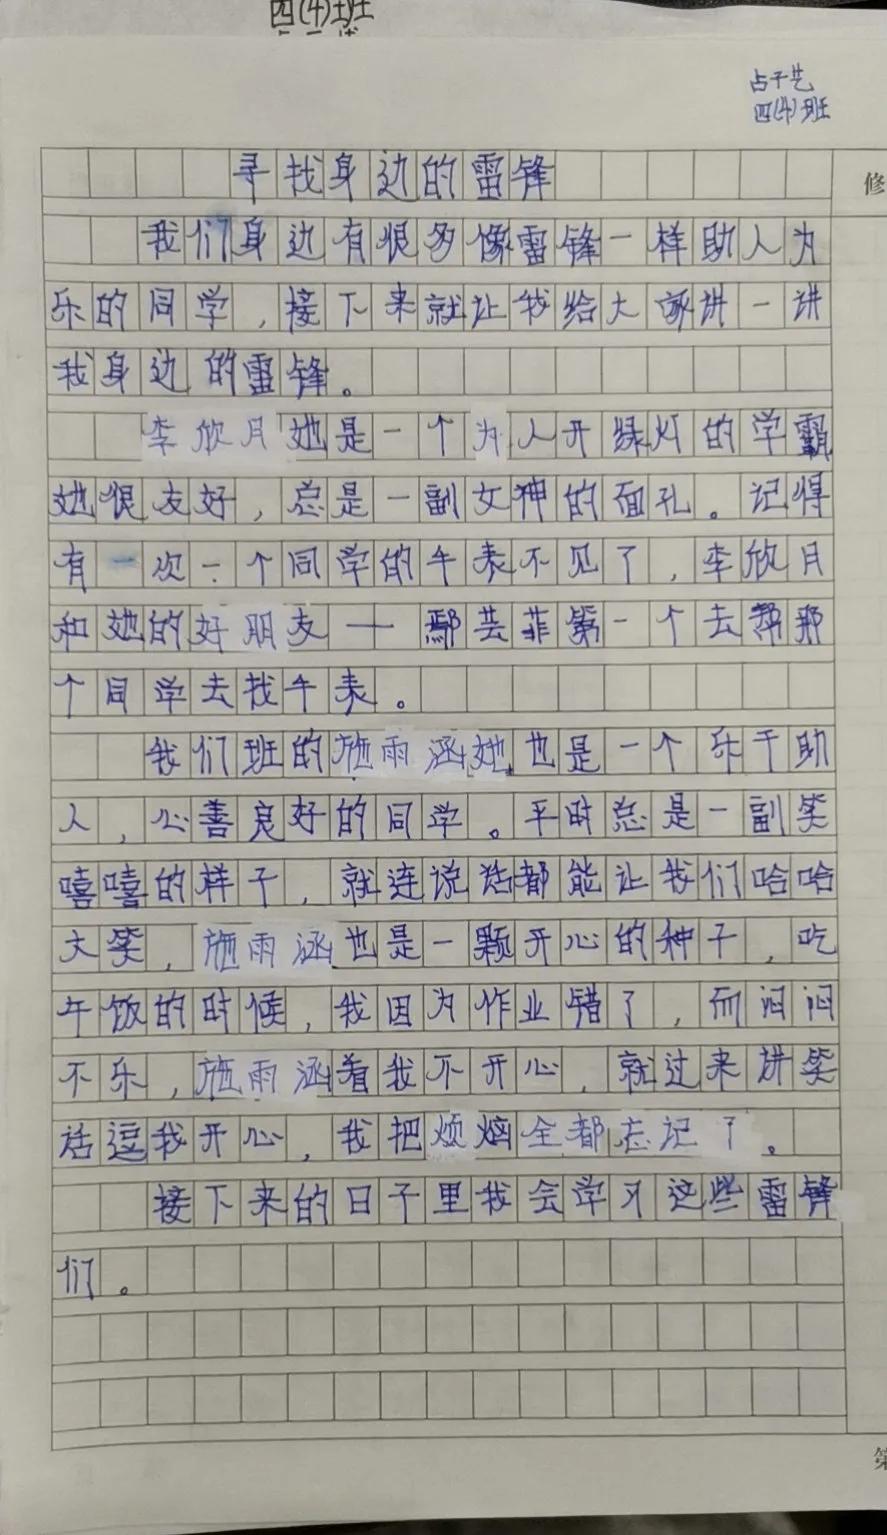 四(4)班
占子艺
四(4)班
寻找身边的雷锋
修
我们身边有很多像雷锋一样助人为
乐的同学，接下来就让我给大家讲一讲
我身边的雷锋。
李欣月她是一个为人开绿灯的学霸
她很友好，总是一副女神的面孔。记得
有一次一个同学的手表不见了，李欣月
和她的好朋友——鄢芸菲第一个去帮那
个同学去找手表。
我们班的施雨涵她也是一个乐于助
人，心善良好的同学。平时总是一副笑
嘻嘻的样子，就连说话都能让我们哈哈
大笑，施雨涵也是一颗开心的种子，吃
午饭的时候，我因为作业错了，而闷闷
不乐，施雨涵看我不开心，就过来讲笑
话逗我开心，我把烦恼全都忘记了。
接下来的日子里我会学习这些雷锋
们。
第